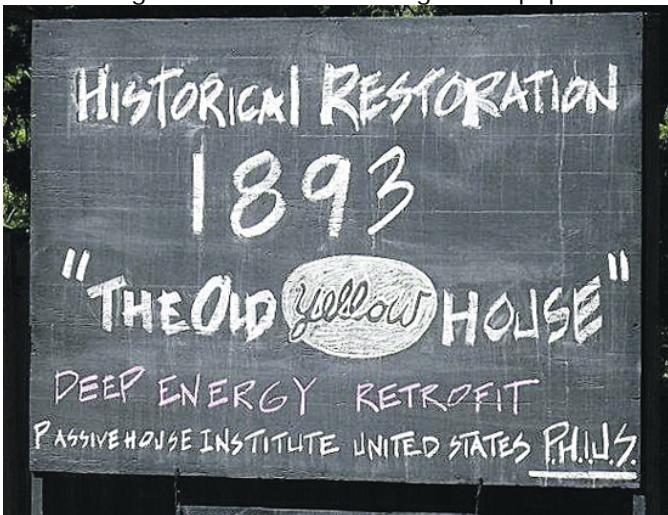 HISTORICAL RESTORATION
1893
"THE OLD yellow HOUSE"
DEEP ENERGY RETROFIT
PASSIVEHOUSE INSTITUTE UNITED STATES P.H.I.U.S.